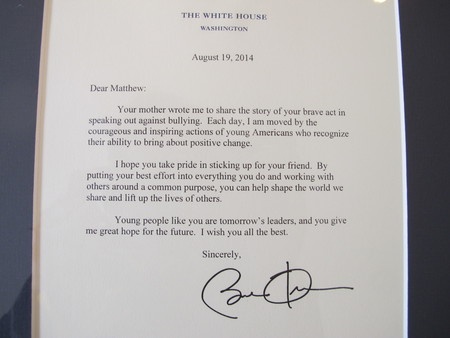 THE WHITE HOUSE
WASHINGTON
August 19, 2014
Dear Matthew:
Your mother wrote me to share the story of your brave act in
speaking out against bullying. Each day, I am moved by the
courageous and inspiring actions of young Americans who recognize
their ability to bring about positive change.
I hope you take pride in sticking up for your friend. By
putting your best effort into everything you do and working with
others around a common purpose, you can help shape the world we
share and lift up the lives of others.
Young people like you are tomorrow's leaders, and you give
me great hope for the future. I wish you all the best.
Sincerely,